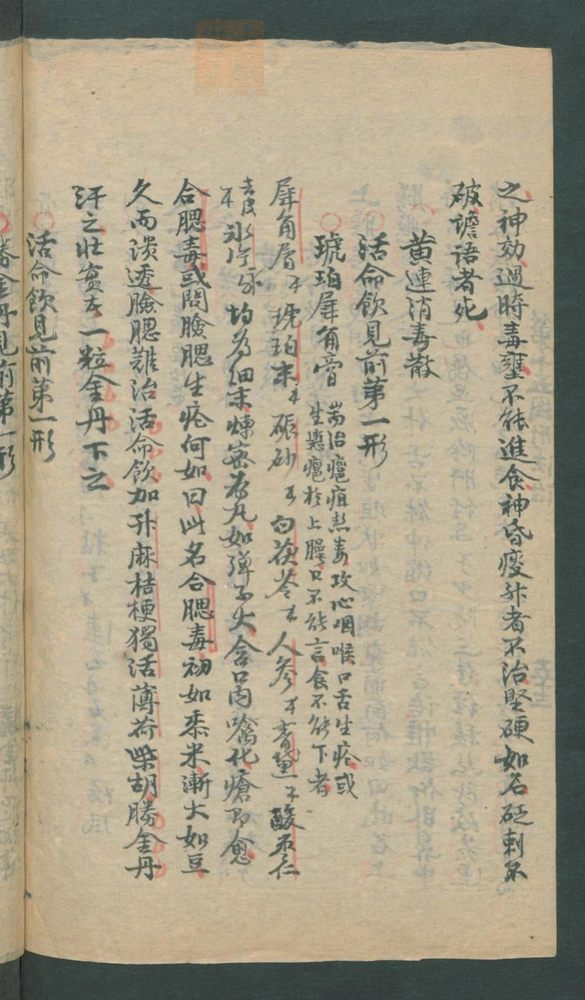 之神効過時毒壅不能進食神昏痰升者不治堅硬如石砭刺不
破譫語者死
黄連消毒散
活命飲見前第一形
琥珀犀角膏 耑治癰疽熱毒攻心咽喉口舌生瘡或
生癰於上膈口不能言食不能下者
犀角屑 琥珀末 硃砂 白茯苓 人參 酸枣仁
片 均為細末煉蜜為丸如弹子大含口内噙化瘡即愈
合腮毒或問臉腮生瘡何如曰此名合腮毒初如黍米漸大如豆
久而潰透臉腮難治活命飲加升麻桔梗獨活薄荷柴胡勝金丹
汗之壮實者一粒金丹下之
活命飲見前第一形
勝金丹見前第一形